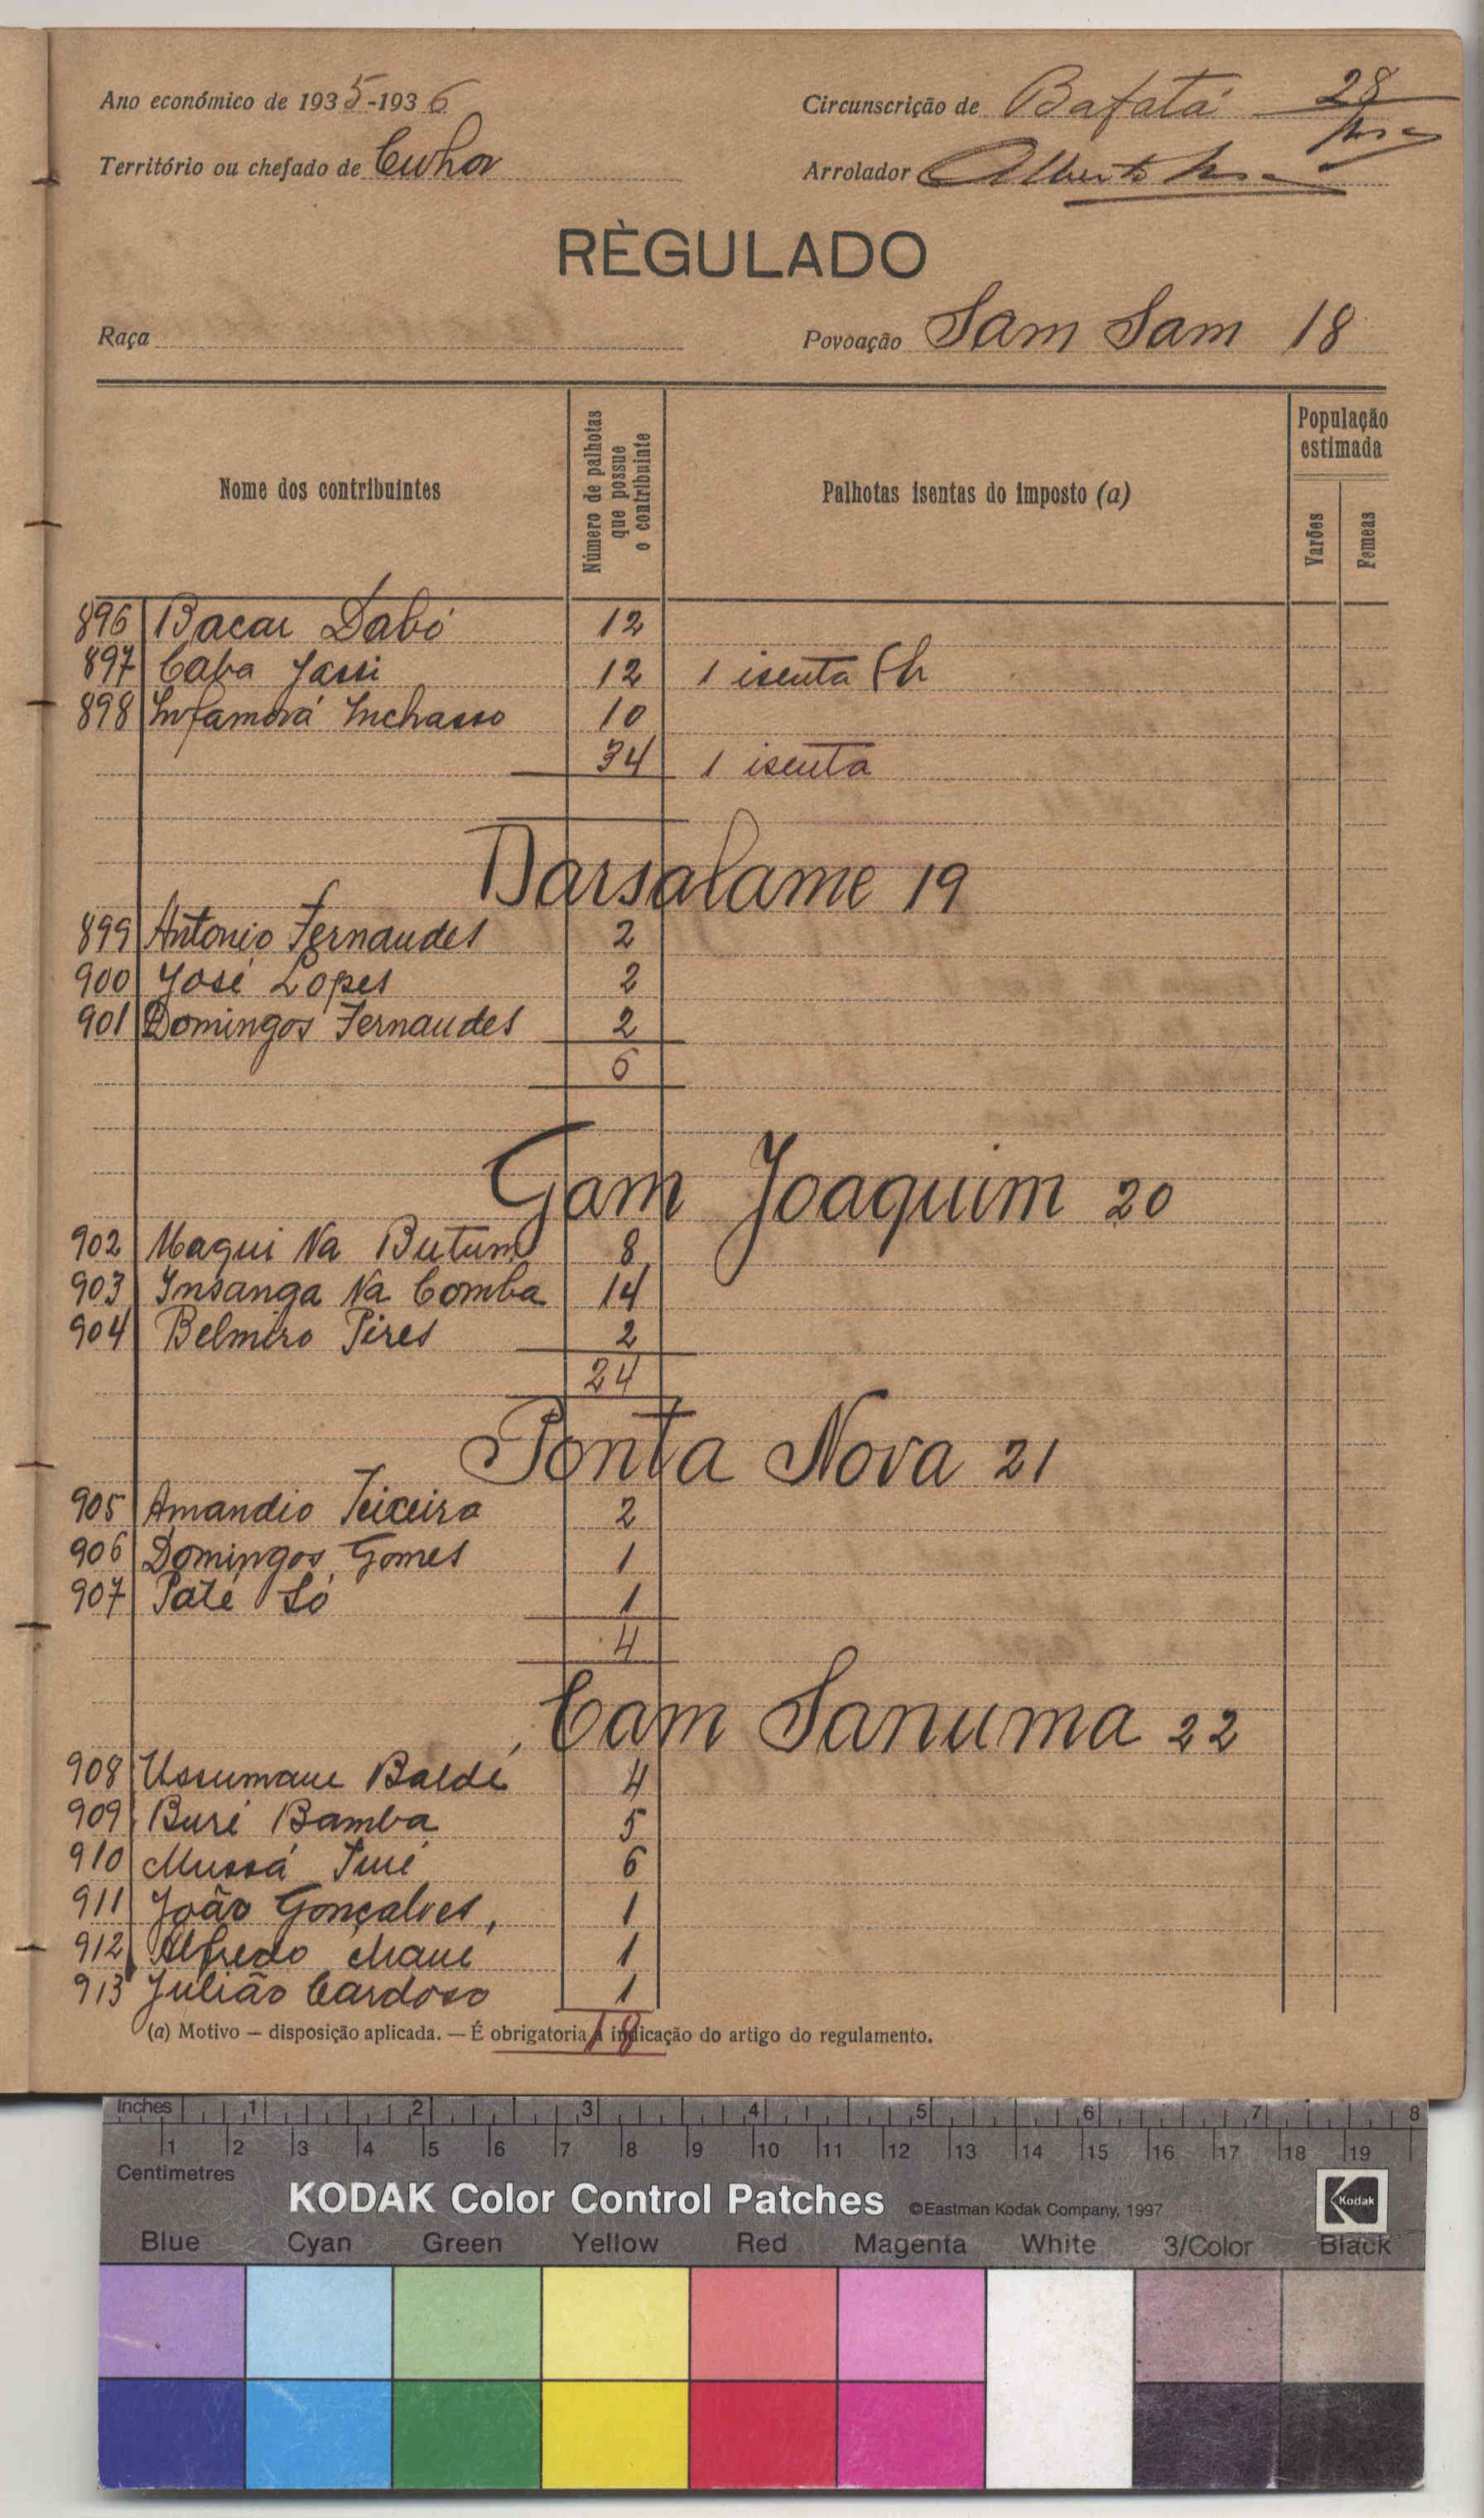 Ano económico de 1935-1936
Circunscrição de Bafatá 28
Território ou chefado de Cuhor
Arrolador Alberto
RÈGULADO
Raça
Povoação Sam Sam 18
Nome dos contribuintes
Número de palhotas que possue o contribuinte
Palhotas isentas do imposto (a)
População estimada
Varões
Femeas
896 Bacar Dabó 12
897 Caba Jassi 12 1 isenta
898 Infamorá Inchasso 10
34 1 isenta
Darsalame 19
899 Antonio Fernandes 2
900 José Lopes 2
901 Domingos Fernandes 2
6
Gam Joaquim 20
902 Maqui Na Butum 8
903 Insanga Na Comba 14
904 Belmiro Pires 2
24
Ponta Nova 21
905 Amandio Teixeira 2
906 Domingos Gomes 1
907 Paté Só 1
4
Cam Sanuma 22
908 Ussumane Baldé 4
909 Buré Bamba 5
910 Mussá Turé 6
911 João Gonçalves, 1
912 Alfredo Mané 1
913 Julião Cardoso 1
18
(a) Motivo — disposição aplicada. — É obrigatoria a indicação do artigo do regulamento.
Inches 1 2 3 4 5 6 7 8
1 2 3 4 5 6 7 8 9 10 11 12 13 14 15 16 17 18 19
Centimetres
KODAK Color Control Patches ©Eastman Kodak Company, 1997 Kodak
Blue Cyan Green Yellow Red Magenta White 3/Color Black